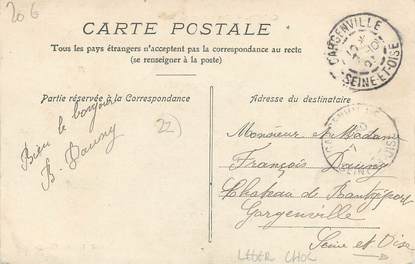 206
CARTE POSTALE
Tous les pays étrangers n'acceptent pas la correspondance au recto
(se renseigner à la poste)
GARGENVILLE
SEINE-ET-OISE
Partie réservée à la Correspondance
Adresse du destinataire
Bien le bonjour
B. Dauny
22)
Monsieur et Madame
François Dauny
Chateau de Rangiport
Gargenville
Seine et Oise
LEGER CHOC